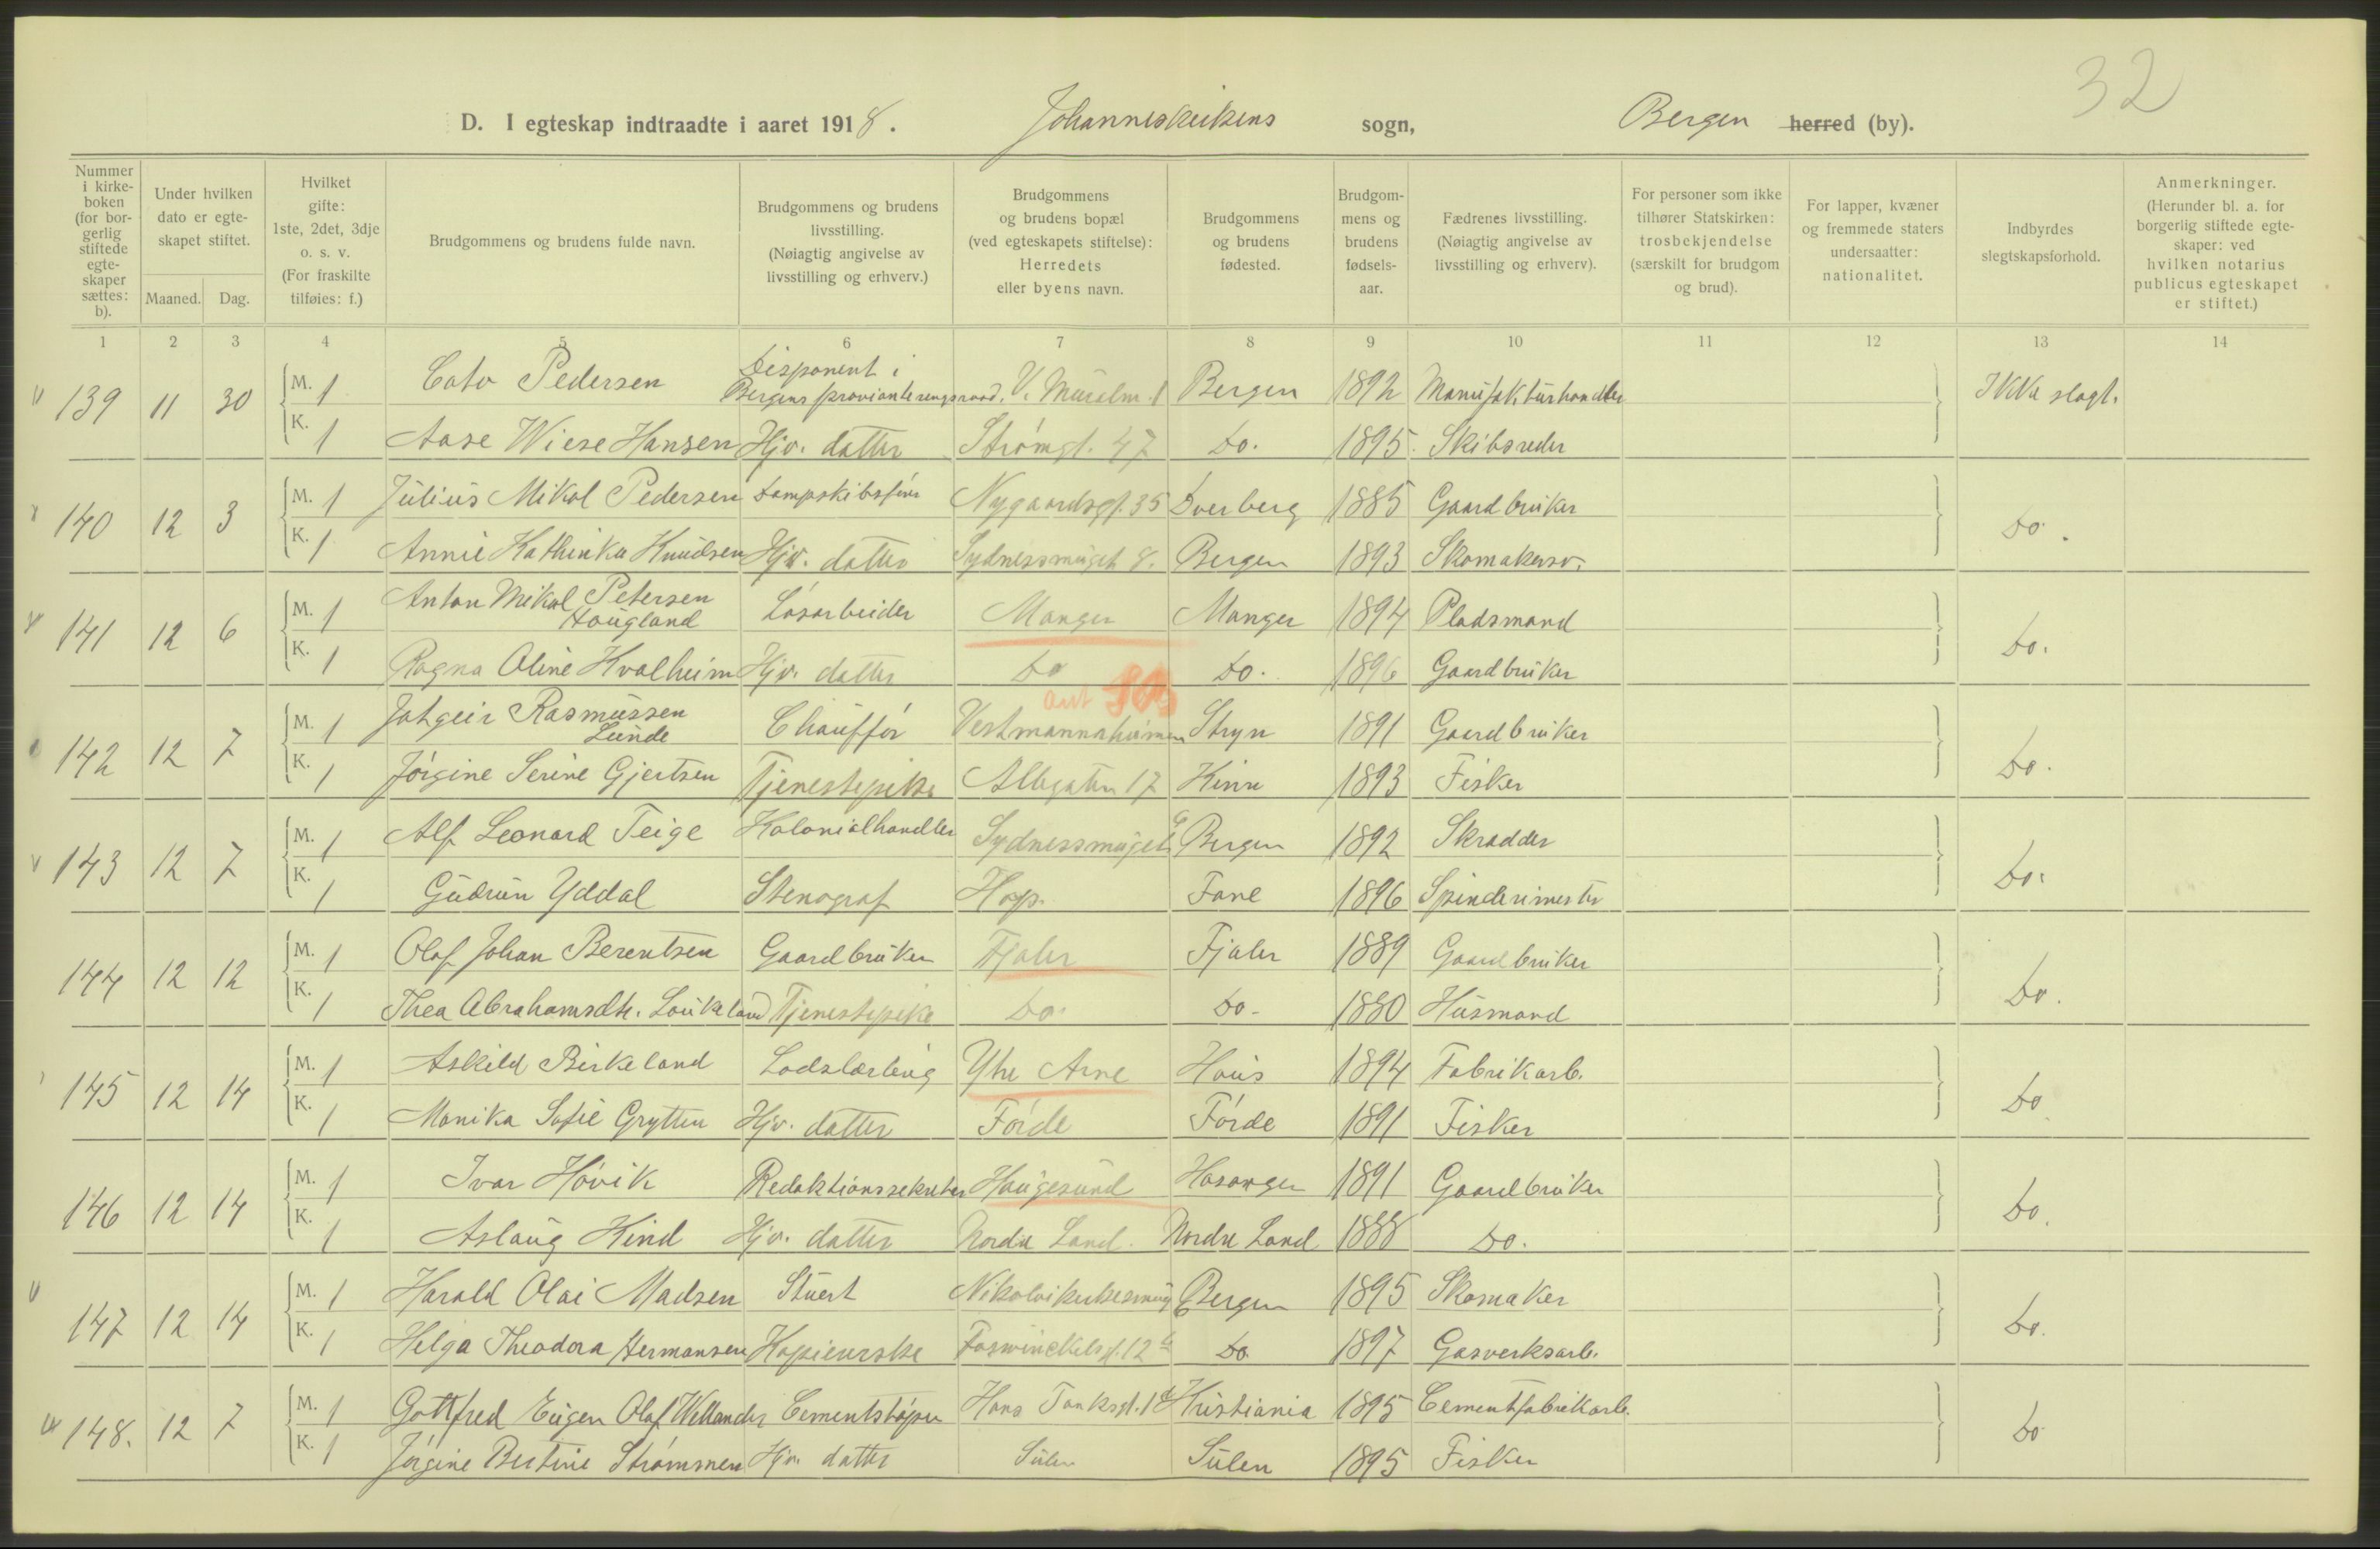 32
D. I egteskap indtraadte i aaret 1918. Johanneskirkens sogn, Bergen herred (by).
Nummer i kirke-boken (for bor-gerlig stiftede egte-skaper sættes: b).
Under hvilken dato er egte-skapet stiftet.
Maaned. Dag.
Hvilket gifte: 1ste, 2det, 3dje o. s. v. (For fraskilte tilføies: f.)
Brudgommens og brudens fulde navn.
Brudgommens og brudens livsstilling. (Nøiagtig angivelse av livsstilling og erhverv.)
Brudgommens og brudens bopæl (ved egteskapets stiftelse): Herredets eller byens navn.
Brudgommens og brudens fødested.
Brudgom-mens og brudens fødsels-aar.
Fædrenes livsstilling. (Nøiagtig angivelse av livsstilling og erhverv).
For personer som ikke tilhører Statskirken: trosbekjendelse (særskilt for brudgom og brud).
For lapper, kvæner og fremmede staters undersaatter: nationalitet.
Indbyrdes slegtskapsforhold.
Anmerkninger. (Herunder bl. a. for borgerlig stiftede egte-skaper: ved hvilken notarius publicus egteskapet er stiftet.)
1 2 3 4 5 6 7 8 9 10 11 12 13 14
139 11 30 M. 1 Cato Pedersen Disponent i Bergens provianteringsraad. V. Muralm. 1 Bergen 1892 Manufakturhandler Ikke slegt.
K. 1 Aase Wiese Hansen Hjv. datter Strømgt. 47 Do. 1895 Skibsreder
140 12 3 M. 1 Julius Mikal Pedersen Dampskibsfører Nygaardsgt. 35 Dverberg 1885 Gaardbruker Do.
K. 1 Annie Kathinka Knudsen Hjv. datter Sydnessmuget 8. Bergen 1893 Skomakersv.
141 12 6 M. 1 Anton Mikal Petersen Hougland Løsarbeider Manger Manger 1894 Pladsmand Do.
K. 1 Ragna Oline Kvalheim Hjv. datter Do Do. 1896 Gaardbruker
142 12 7 M. 1 Jotgeir Rasmussen Lunde Chauffør Vestmannaheimen Stryn 1891 Gaardbruker Do.
K. 1 Jørgine Serine Gjertsen Tjenestepike Allegaten 17 Kinn 1893 Fisker
143 12 7 M. 1 Alf Leonard Teige Kolonialhandler Sydnessmuget Bergen 1892 Skrædder Do.
K. 1 Gudrun Yddal Stenograf Hop. Fane 1896 Spinderimester
144 12 12 M. 1 Olaf Johan Berentsen Gaardbruker Fjaler Fjaler 1889 Gaardbruker Do.
K. 1 Thea Abrahamsdtr. Loukeland Tjenestepike Do. Do. 1880 Husmand
145 12 14 M. 1 Askild Birkeland Lodslærling Ytre Arne Haus 1894 Fabrikarb. Do.
K. 1 Monika Sofie Grytten Hjv. datter Førde Førde 1891 Fisker
146 12 14 M. 1 Ivar Høvik Redaktionssekretær Haugesund Hosanger 1891 Gaardbruker Do.
K. 1 Aslaug Kind Hjv. datter Nordre Land. Nordre Land 1888 Do.
147 12 14 M. 1 Harald Olai Madsen Stuert Nikolaikirkesmug Bergen 1895 Skomaker Do.
K. 1 Helga Theodora Hermansen Kopieurske Foswinckelsgt. 12 Do 1897 Gasverksarb.
148. 12 7 M. 1 Gottfred Eugen Olaf Wellander Cementstøper Hans Tanksgt. 1 Kristiania 1895 Cementfabrikarb. Do
K. 1 Jørgine Bertine Strømmen Hjv. datter Sulen Sulen 1895 Fisker